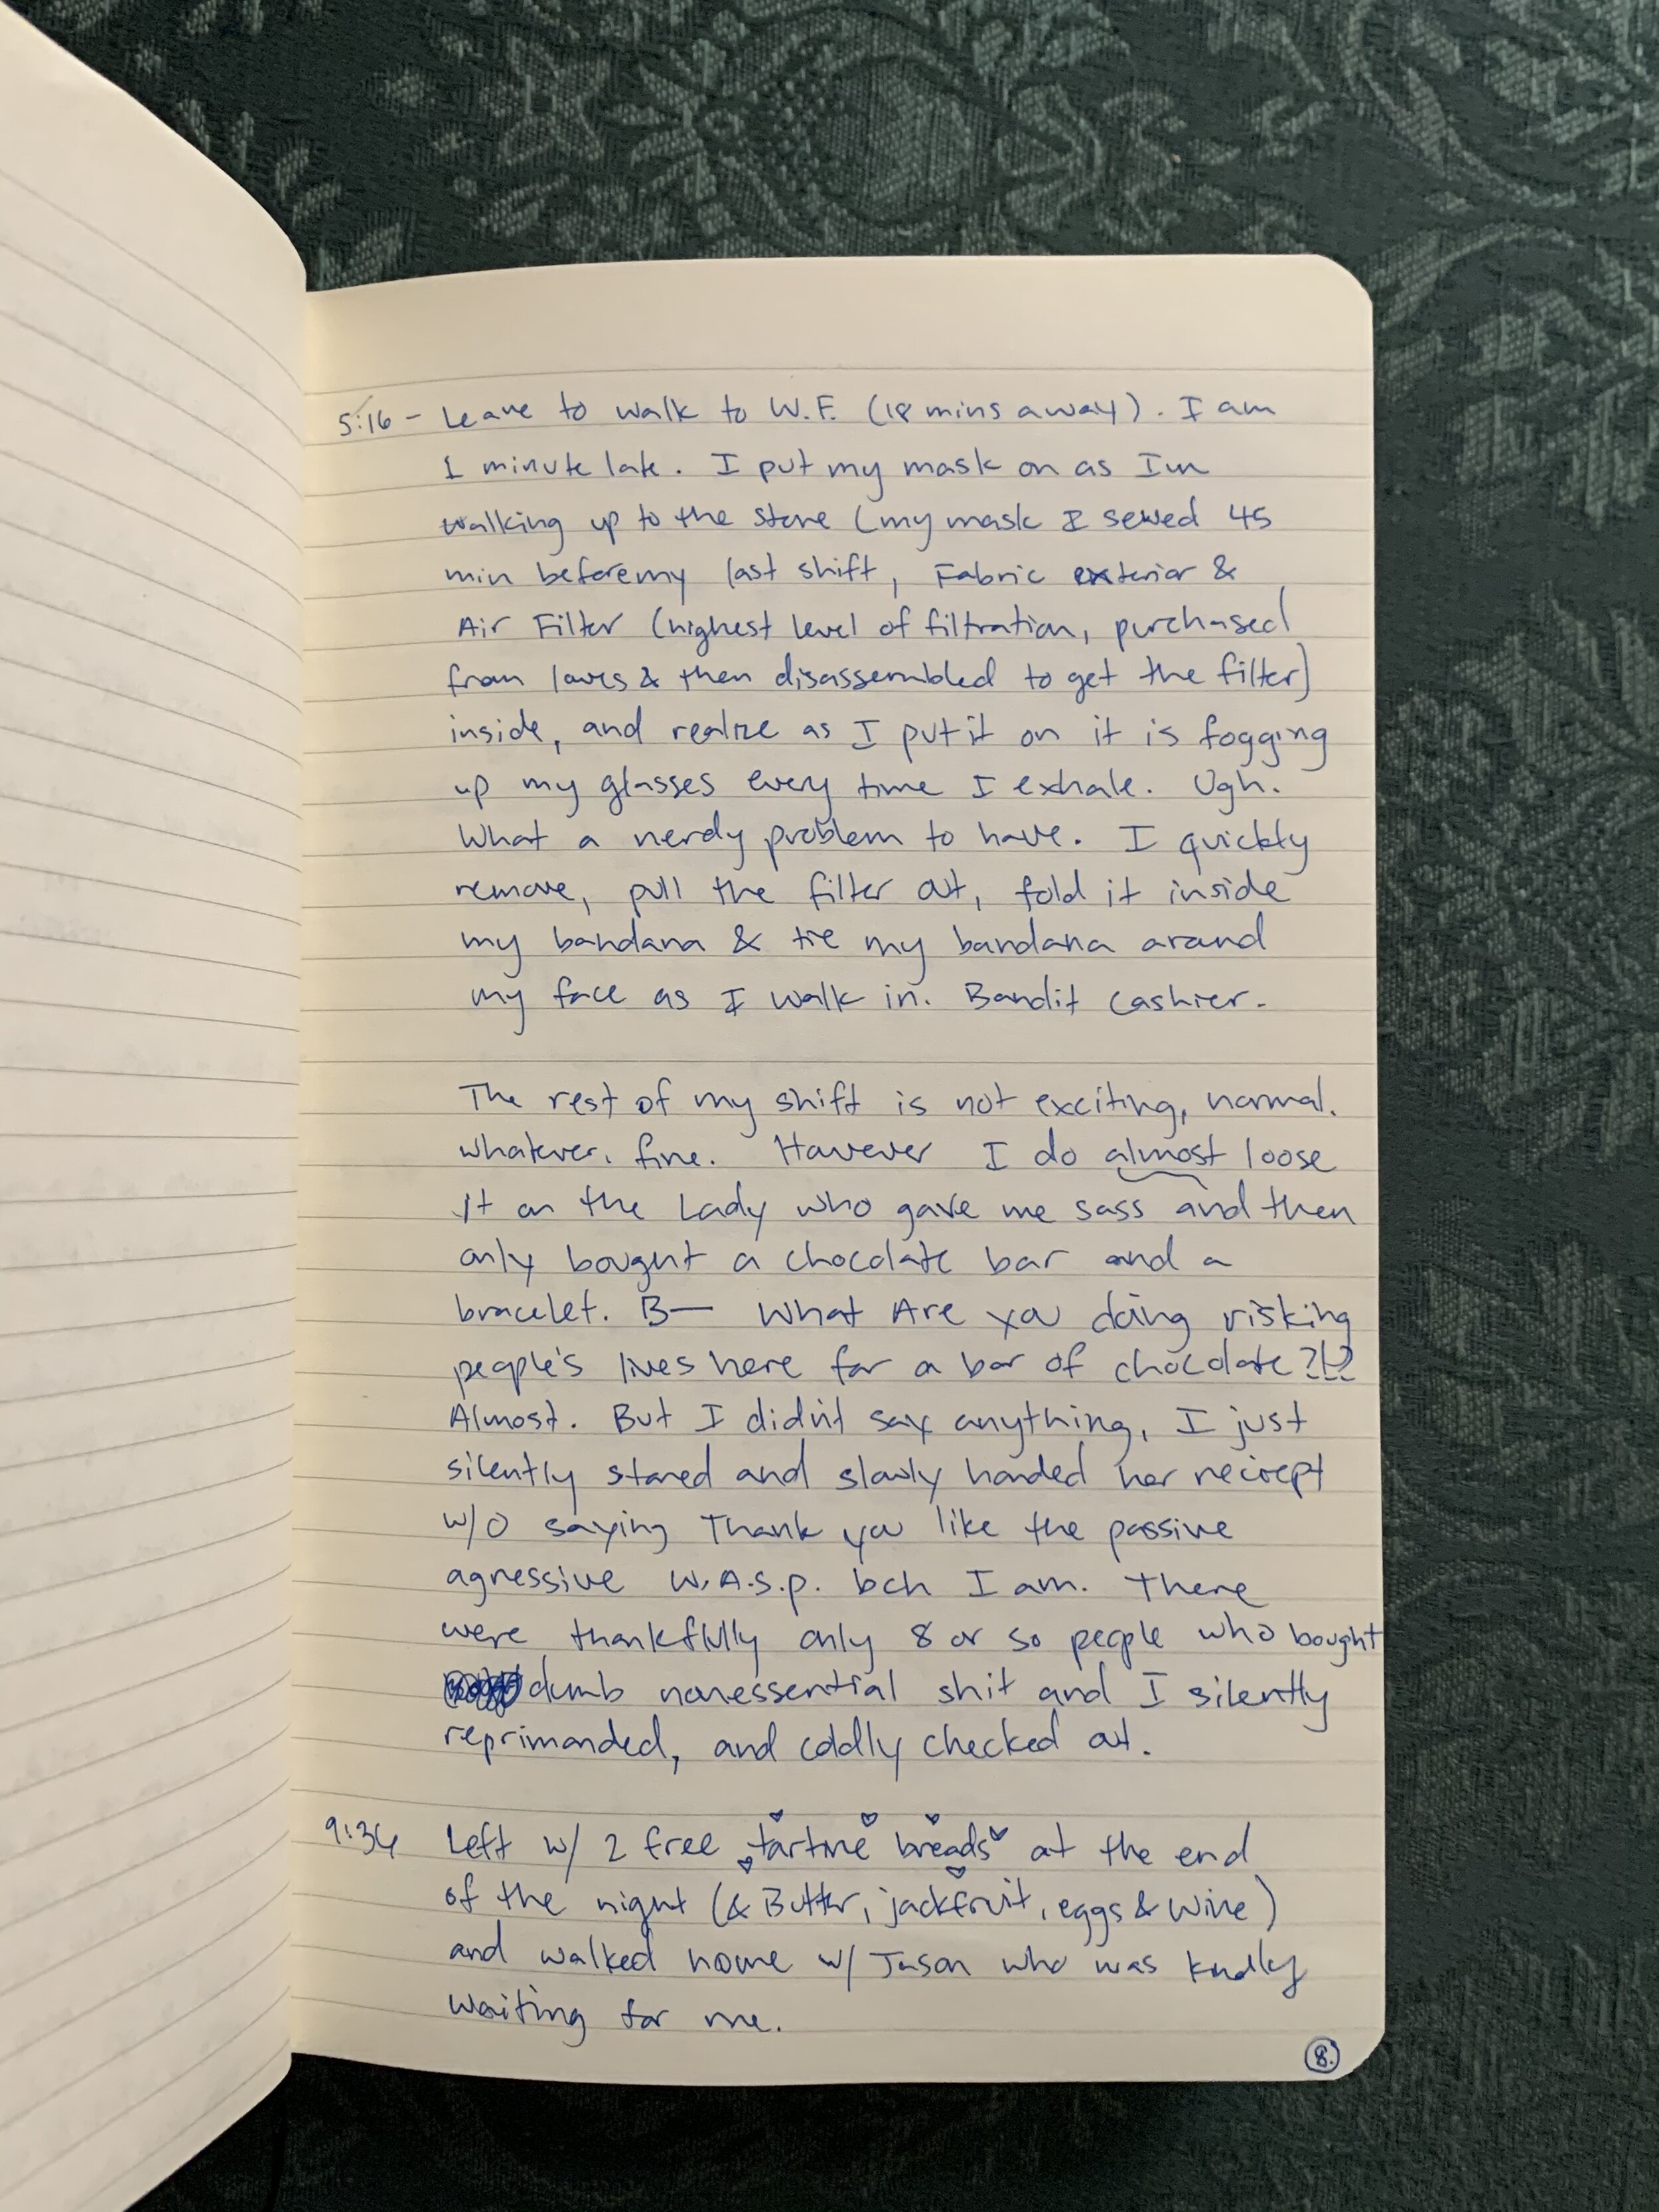 5:16 - Leave to walk to W.F. (18 mins away). I am
1 minute late. I put my mask on as I'm
walking up to the store (my mask I sewed 45
min before my last shift, Fabric exterior &
Air Filter (highest level of filtration, purchased
from lowes & then disassembled to get the filter)
inside, and realize as I put it on it is fogging
up my glasses every time I exhale. Ugh.
What a nerdy problem to have. I quickly
remove, pull the filter out, fold it inside
my bandana & tie my bandana around
my face as I walk in. Bandit Cashier.
The rest of my shift is not exciting, normal.
whatever. fine. However I do almost loose
it on the Lady who gave me sass and then
only bought a chocolate bar and a
bracelet. B— What Are you doing risking
people's lives here for a bar of chocolate?!?
Almost. But I didn't say anything, I just
silently stared and slowly handed her reciept
w/o saying Thank you like the passive
agressive W.A.S.P. bch I am. There
were thankfully only 8 or so people who bought
dumb nonessential shit and I silently
reprimanded, and coldly checked out.
9:36 Left w/ 2 free tartine breads at the end
of the night (& Butter, jackfruit, eggs & wine)
and walked home w/ Jason who was kindly
waiting for me.
8.